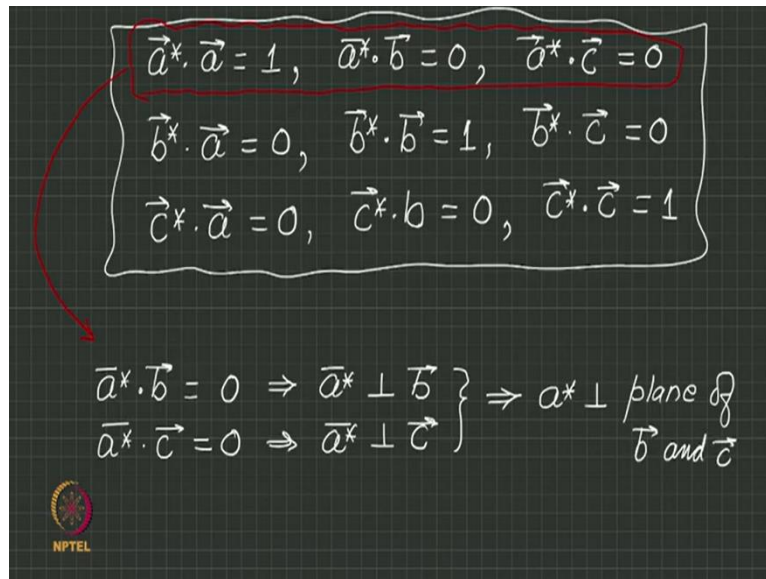 a⃗*·a⃗ = 1, a̅*·b⃗ = 0, a⃗*·c⃗ = 0
b⃗*·a⃗ = 0, b⃗*·b⃗ = 1, b⃗*·c⃗ = 0
c⃗*·a⃗ = 0, c⃗*·b = 0, c⃗*·c⃗ = 1
a̅*·b⃗ = 0 ⇒ a̅* ⊥ b⃗ } ⇒ a* ⊥ plane of
a̅*·c⃗ = 0 ⇒ a̅* ⊥ c⃗
b⃗ and c⃗
NPTEL